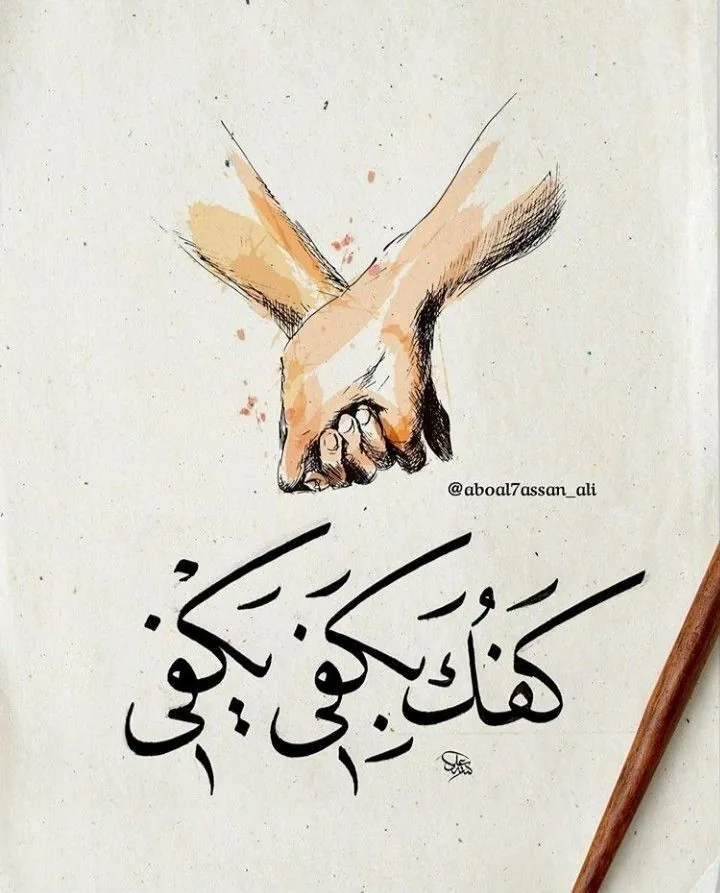 @aboal7assan_ali
كَفُكَ بِكَفِي يَكْفِي